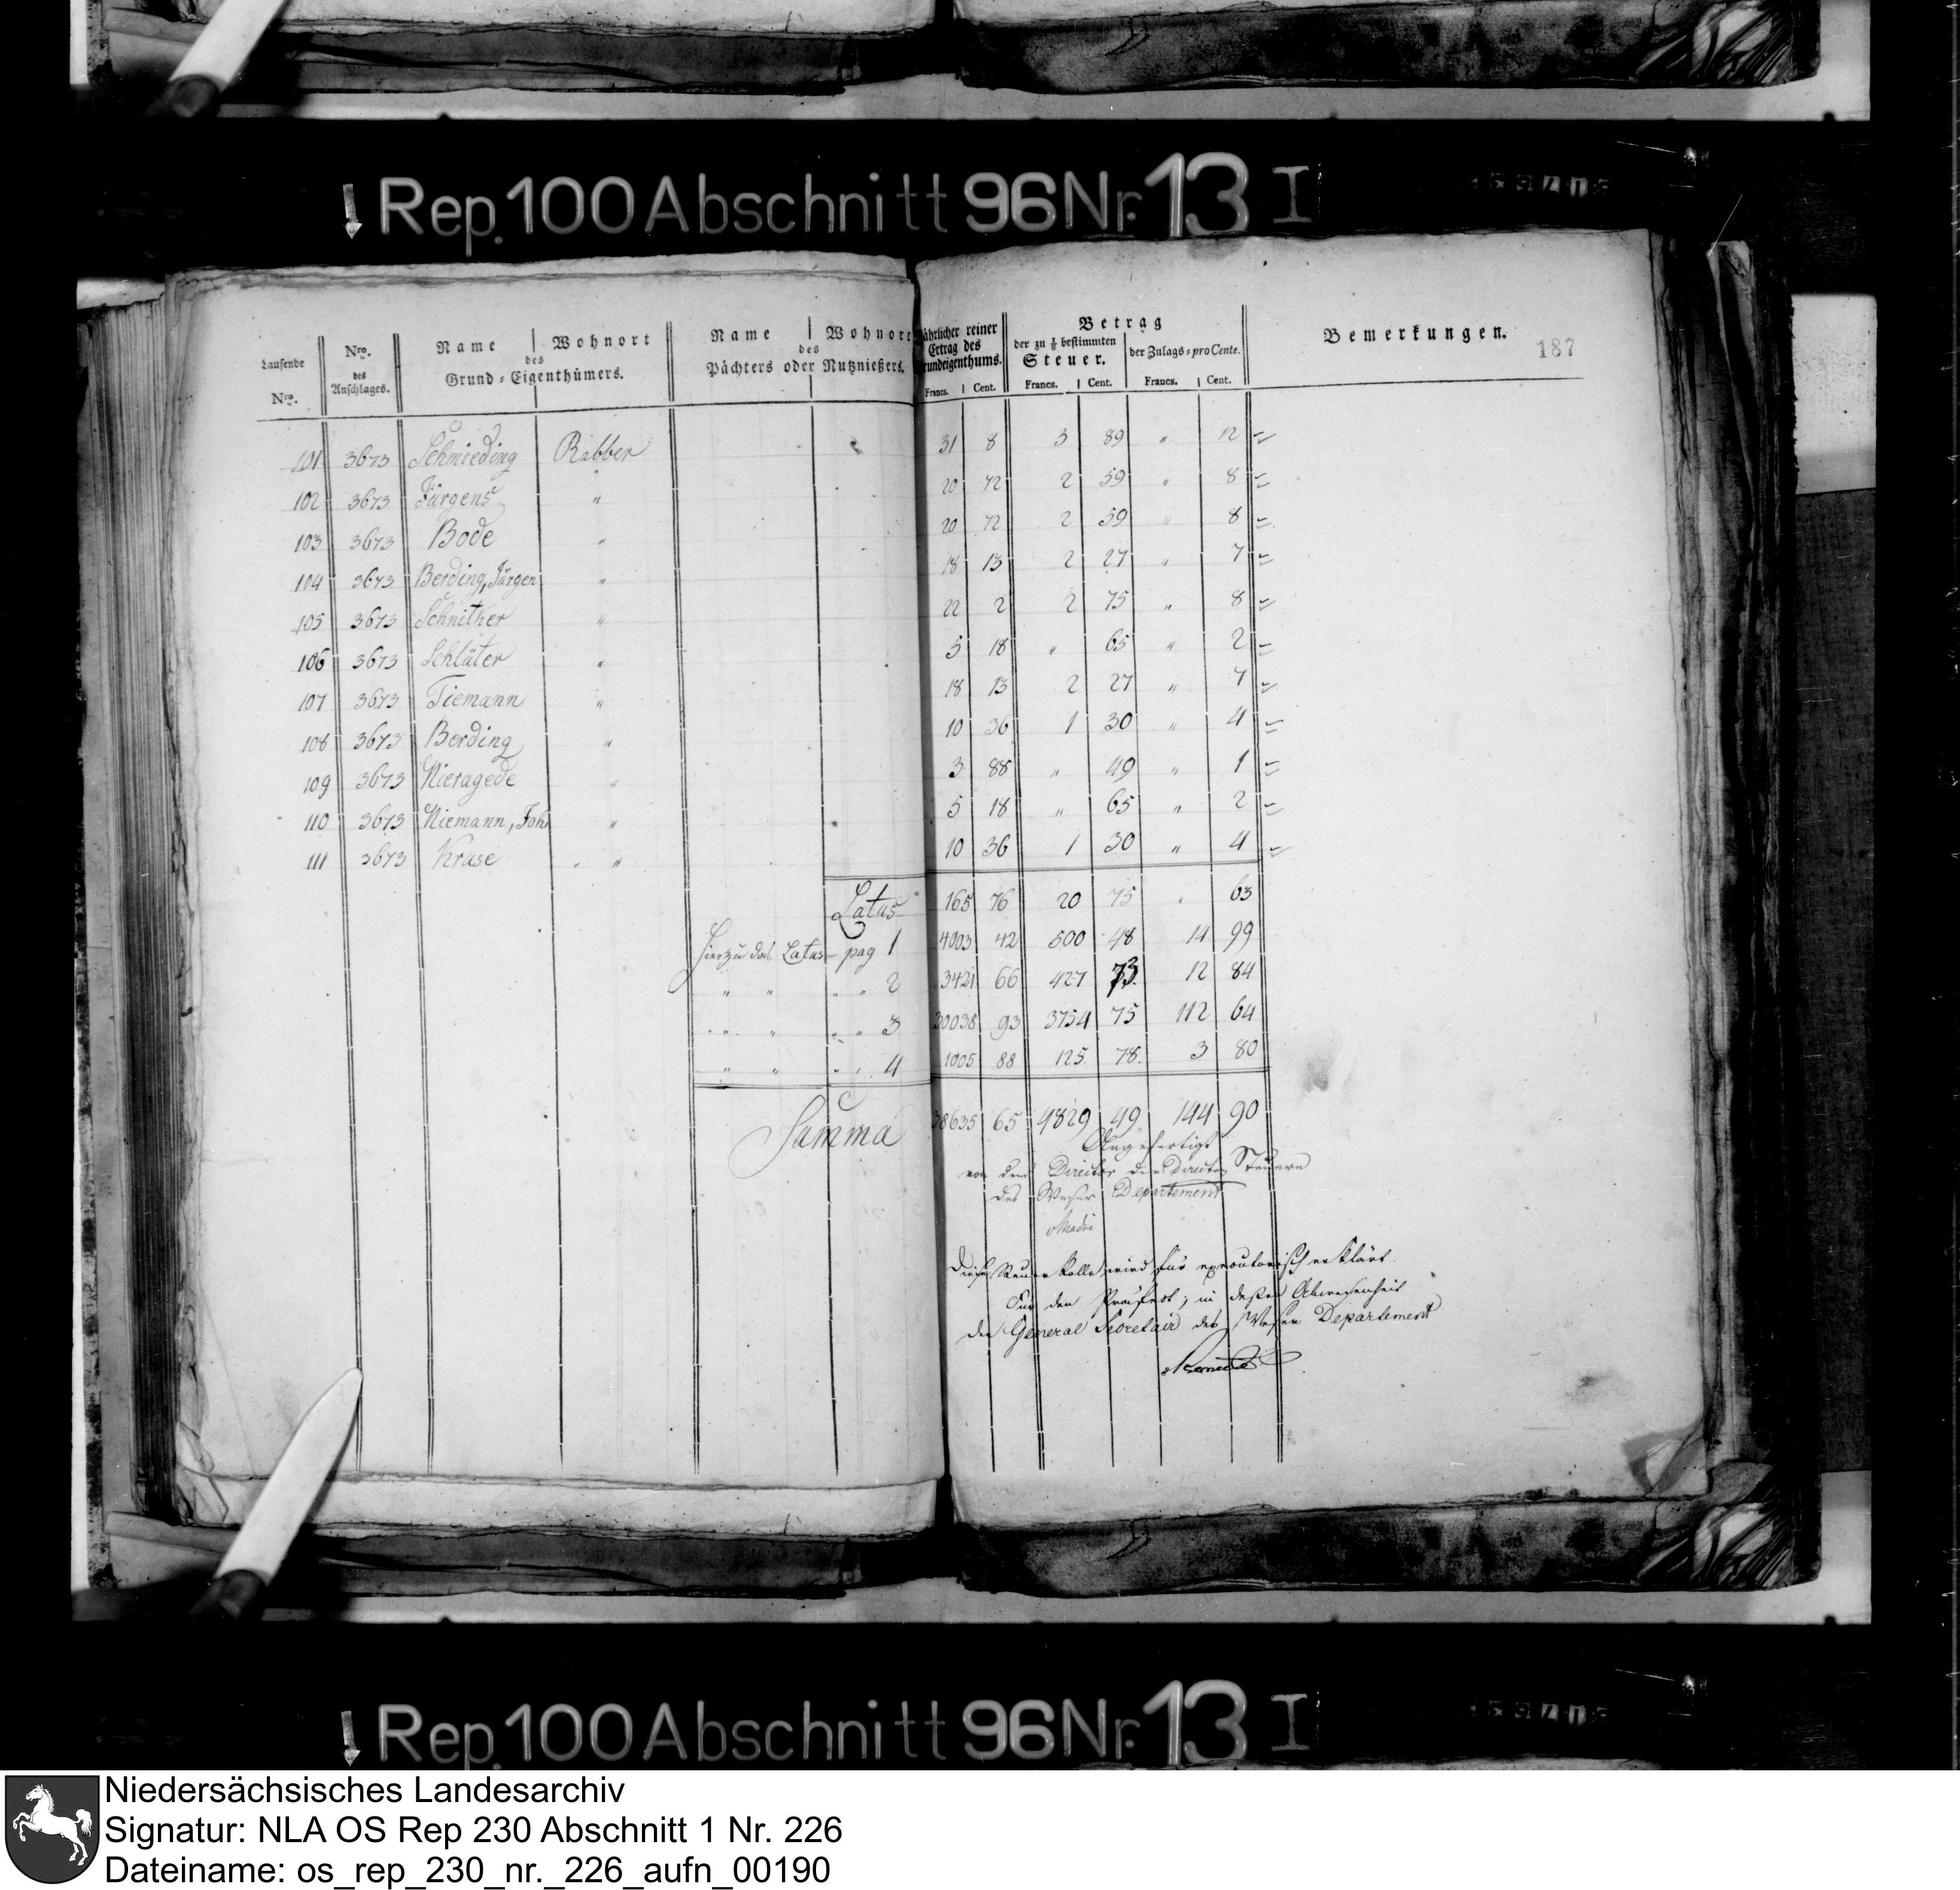 Rep. 100 Abschnitt 96 Nr. 13 I
187
Laufende Nro.
Nro. des Anschlages.
Name | Wohnort
des
Grund-Eigenthümers.
Name | Wohnort
des
Pächters oder Nutznießers.
Jährlicher reiner
Ertrag des
Grundeigenthums.
Francs. | Cent.
Betrag
der zu 1/8 bestimmten
Steuer.
Francs. | Cent.
der Zulags-pro Cente.
Francs. | Cent.
Bemerkungen.
101 3673 Schmieding Rabber 31 8 3 89 " 12
102 3673 Jürgens " 20 72 2 59 " 8
103 3673 Bode " 20 72 2 59 " 8
104 3673 Berding, Jürgen " 18 13 2 27 " 7
105 3673 Schnither " 22 2 2 75 " 8
106 3673 Schlüter " 5 18 " 65 " 2
107 3673 Tiemann " 18 13 2 27 " 7
108 3673 Berding " 10 36 1 30 " 4
109 3673 Nieragede " 3 88 " 49 " 1
110 3673 Niemann, Joh " 5 18 " 65 " 2
111 3673 Kruse " 10 36 1 30 " 4
Latus 165 76 20 75 " 63
Hierzu das Latus pag 1 4003 42 500 48 14 99
" " " " 2 3421 66 427 73 12 84
" " " " 3 30038 93 3754 75 112 64
" " " " 4 1005 88 125 78 3 80
Summa 38635 65 4829 49 144 90
Angefertigt
von dem Director der directen Steuern
des Weser Departement
Diese Steuer Rolle wird für executorisch erklärt.
Für den Präfect, in deßen Abwesenheit
der General Secretair des Weser Departement
Rep. 100 Abschnitt 96 Nr. 13 I
Niedersächsisches Landesarchiv
Signatur: NLA OS Rep 230 Abschnitt 1 Nr. 226
Dateiname: os_rep_230_nr._226_aufn_00190